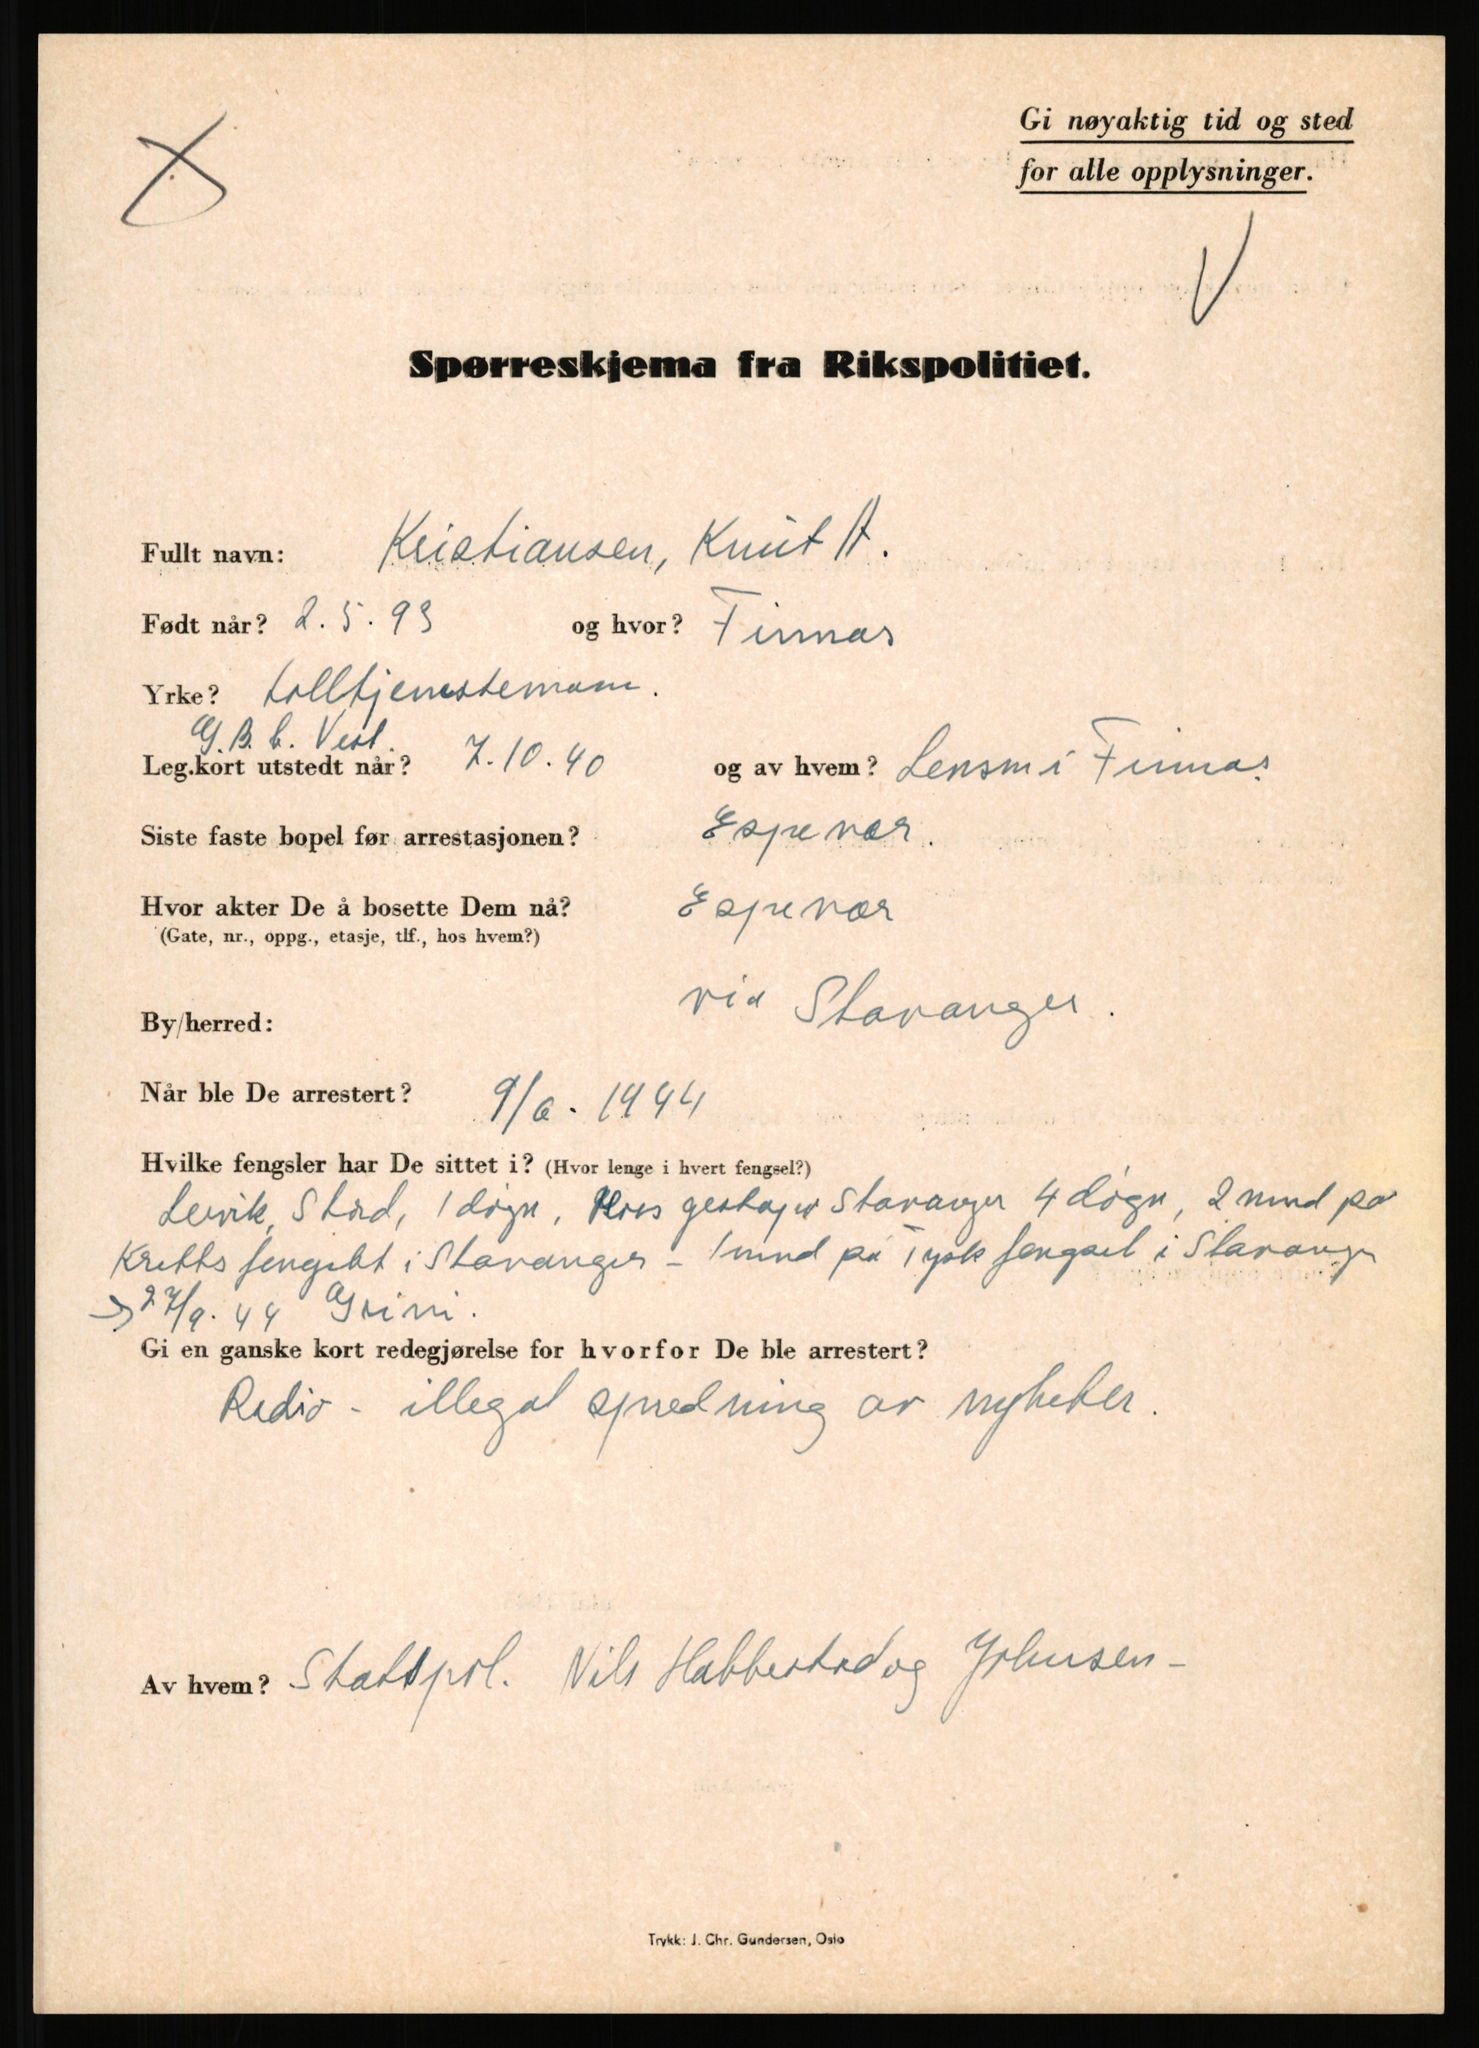 Gi nøyaktig tid og sted
for alle opplysninger.
Spørreskjema fra Rikspolitiet.
Fullt navn: Kristiansen, Knut A.
Født når? 2.5.93 og hvor? Finnas
Yrke? tolltjenestemann.
G.B.b. Vest.
Leg.kort utstedt når? 7.10.40 og av hvem? Lensm i Finnas.
Siste faste bopel før arrestasjonen? Espevær.
Hvor akter De å bosette Dem nå? Espevær
(Gate, nr., oppg., etasje, tlf., hos hvem?)
via Stavanger.
By/herred:
Når ble De arrestert? 9/6. 1944
Hvilke fengsler har De sittet i? (Hvor lenge i hvert fengsel?)
Lervik, Stord, 1 døgn, Hos gestapo Stavanger 4 døgn, 2 mnd på
Kretts fengslet i Stavanger - 1 mnd på Tysk fengsel i Stavanger
→ 27/9. 44 Grini.
Gi en ganske kort redegjørelse for hvorfor De ble arrestert?
Radio - illegal spredning av nyheter.
Av hvem? Statspol. Nils Habbestad og Johnsen -
Trykk: J. Chr. Gundersen, Oslo